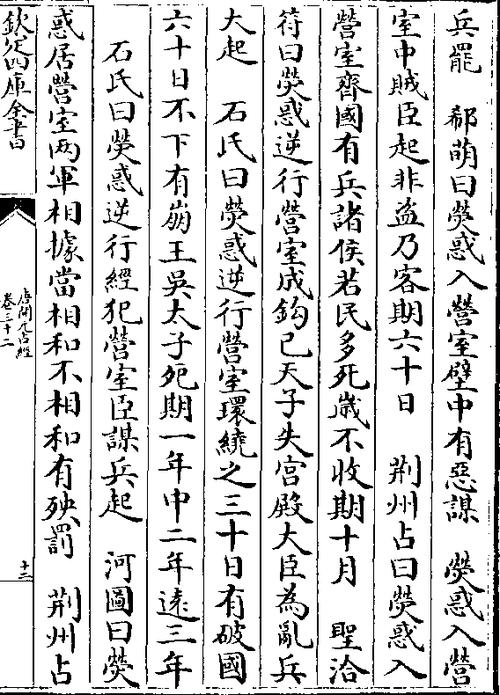 兵罷　郗萌曰熒惑入營室壁中有惡謀　熒惑入營
室中賊臣起非盜乃客期六十日　荆州占曰熒惑入
營室齊國有兵諸侯若民多死歲不收期十月　聖洽
符曰熒惑逆行營室成鈎已天子失宫殿大臣為亂兵
大起　石氏曰熒惑逆行營室環繞之三十日有破國
六十日不下有崩王吳太子死期一年中二年遠三年
石氏曰熒惑逆行經犯營室臣謀兵起　河圖曰熒
惑居營室兩軍相據當相和不相和有殃罰　荆州占
欽定四庫全書
唐開元占經
卷三十二
十二